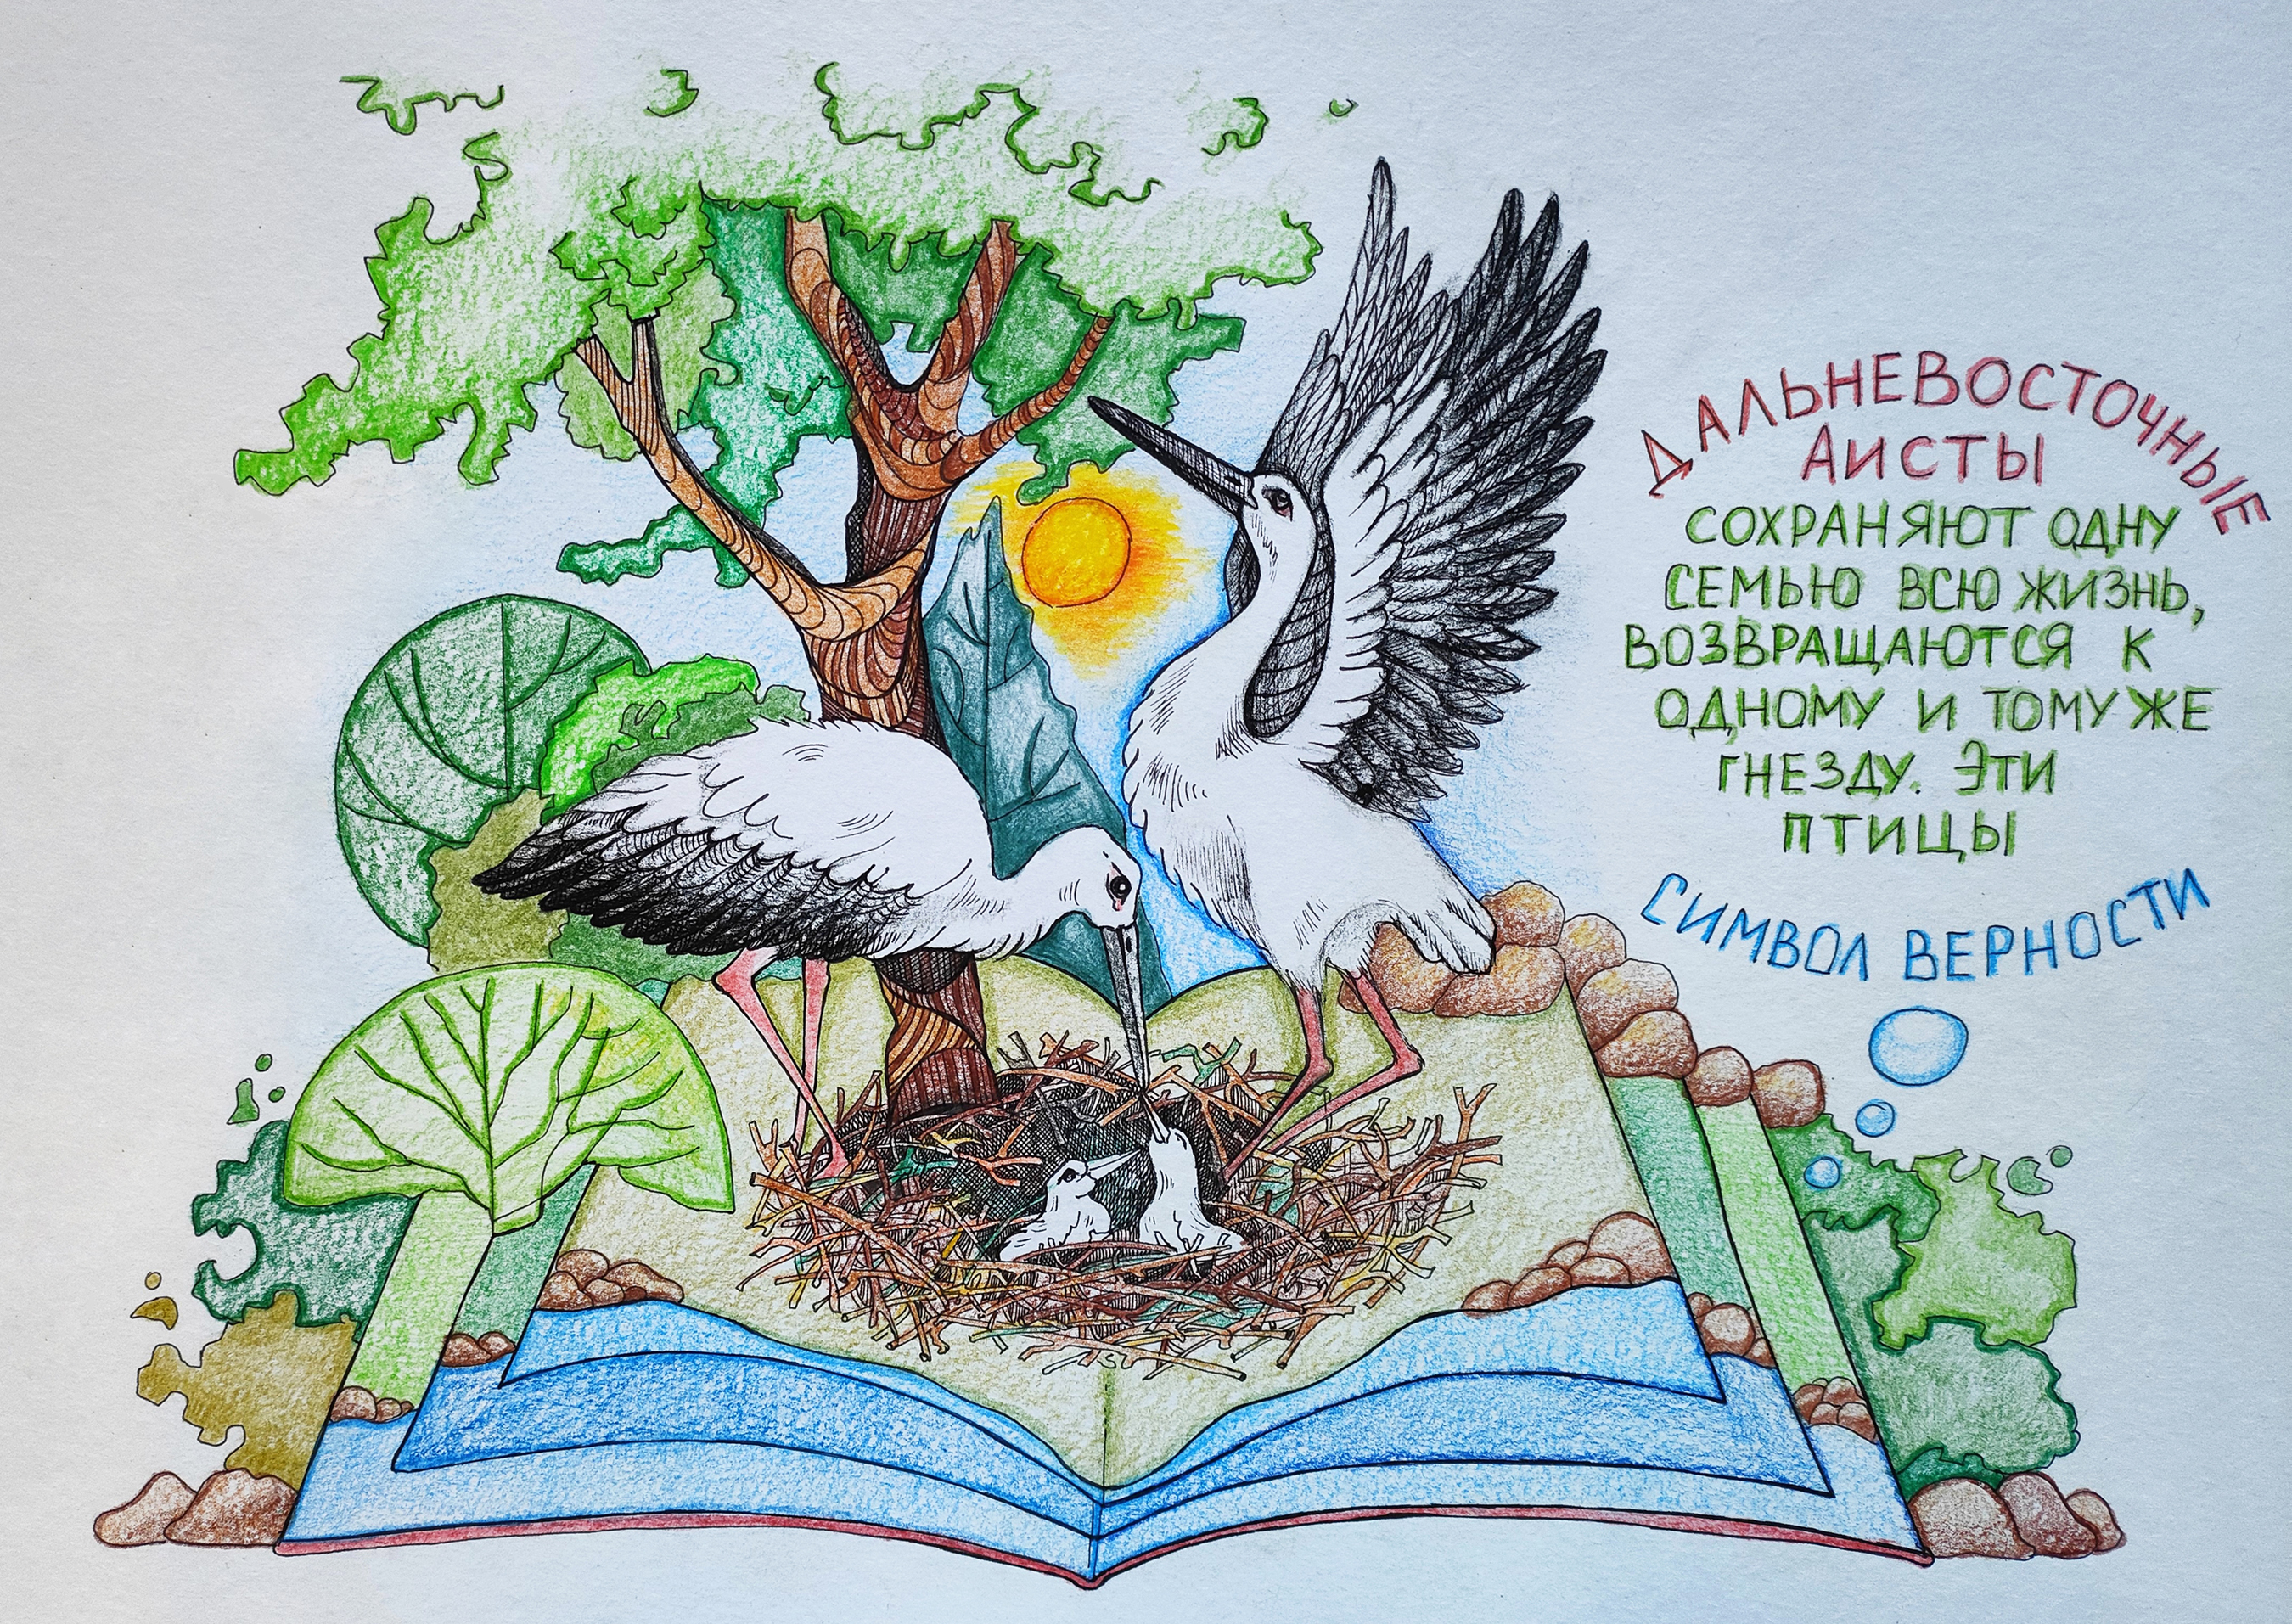 ДАЛЬНЕВОСТОЧНЫЕ
АИСТЫ
СОХРАНЯЮТ ОДНУ
СЕМЬЮ ВСЮ ЖИЗНЬ,
ВОЗВРАЩАЮТСЯ К
ОДНОМУ И ТОМУ ЖЕ
ГНЕЗДУ. ЭТИ
ПТИЦЫ
СИМВОЛ ВЕРНОСТИ